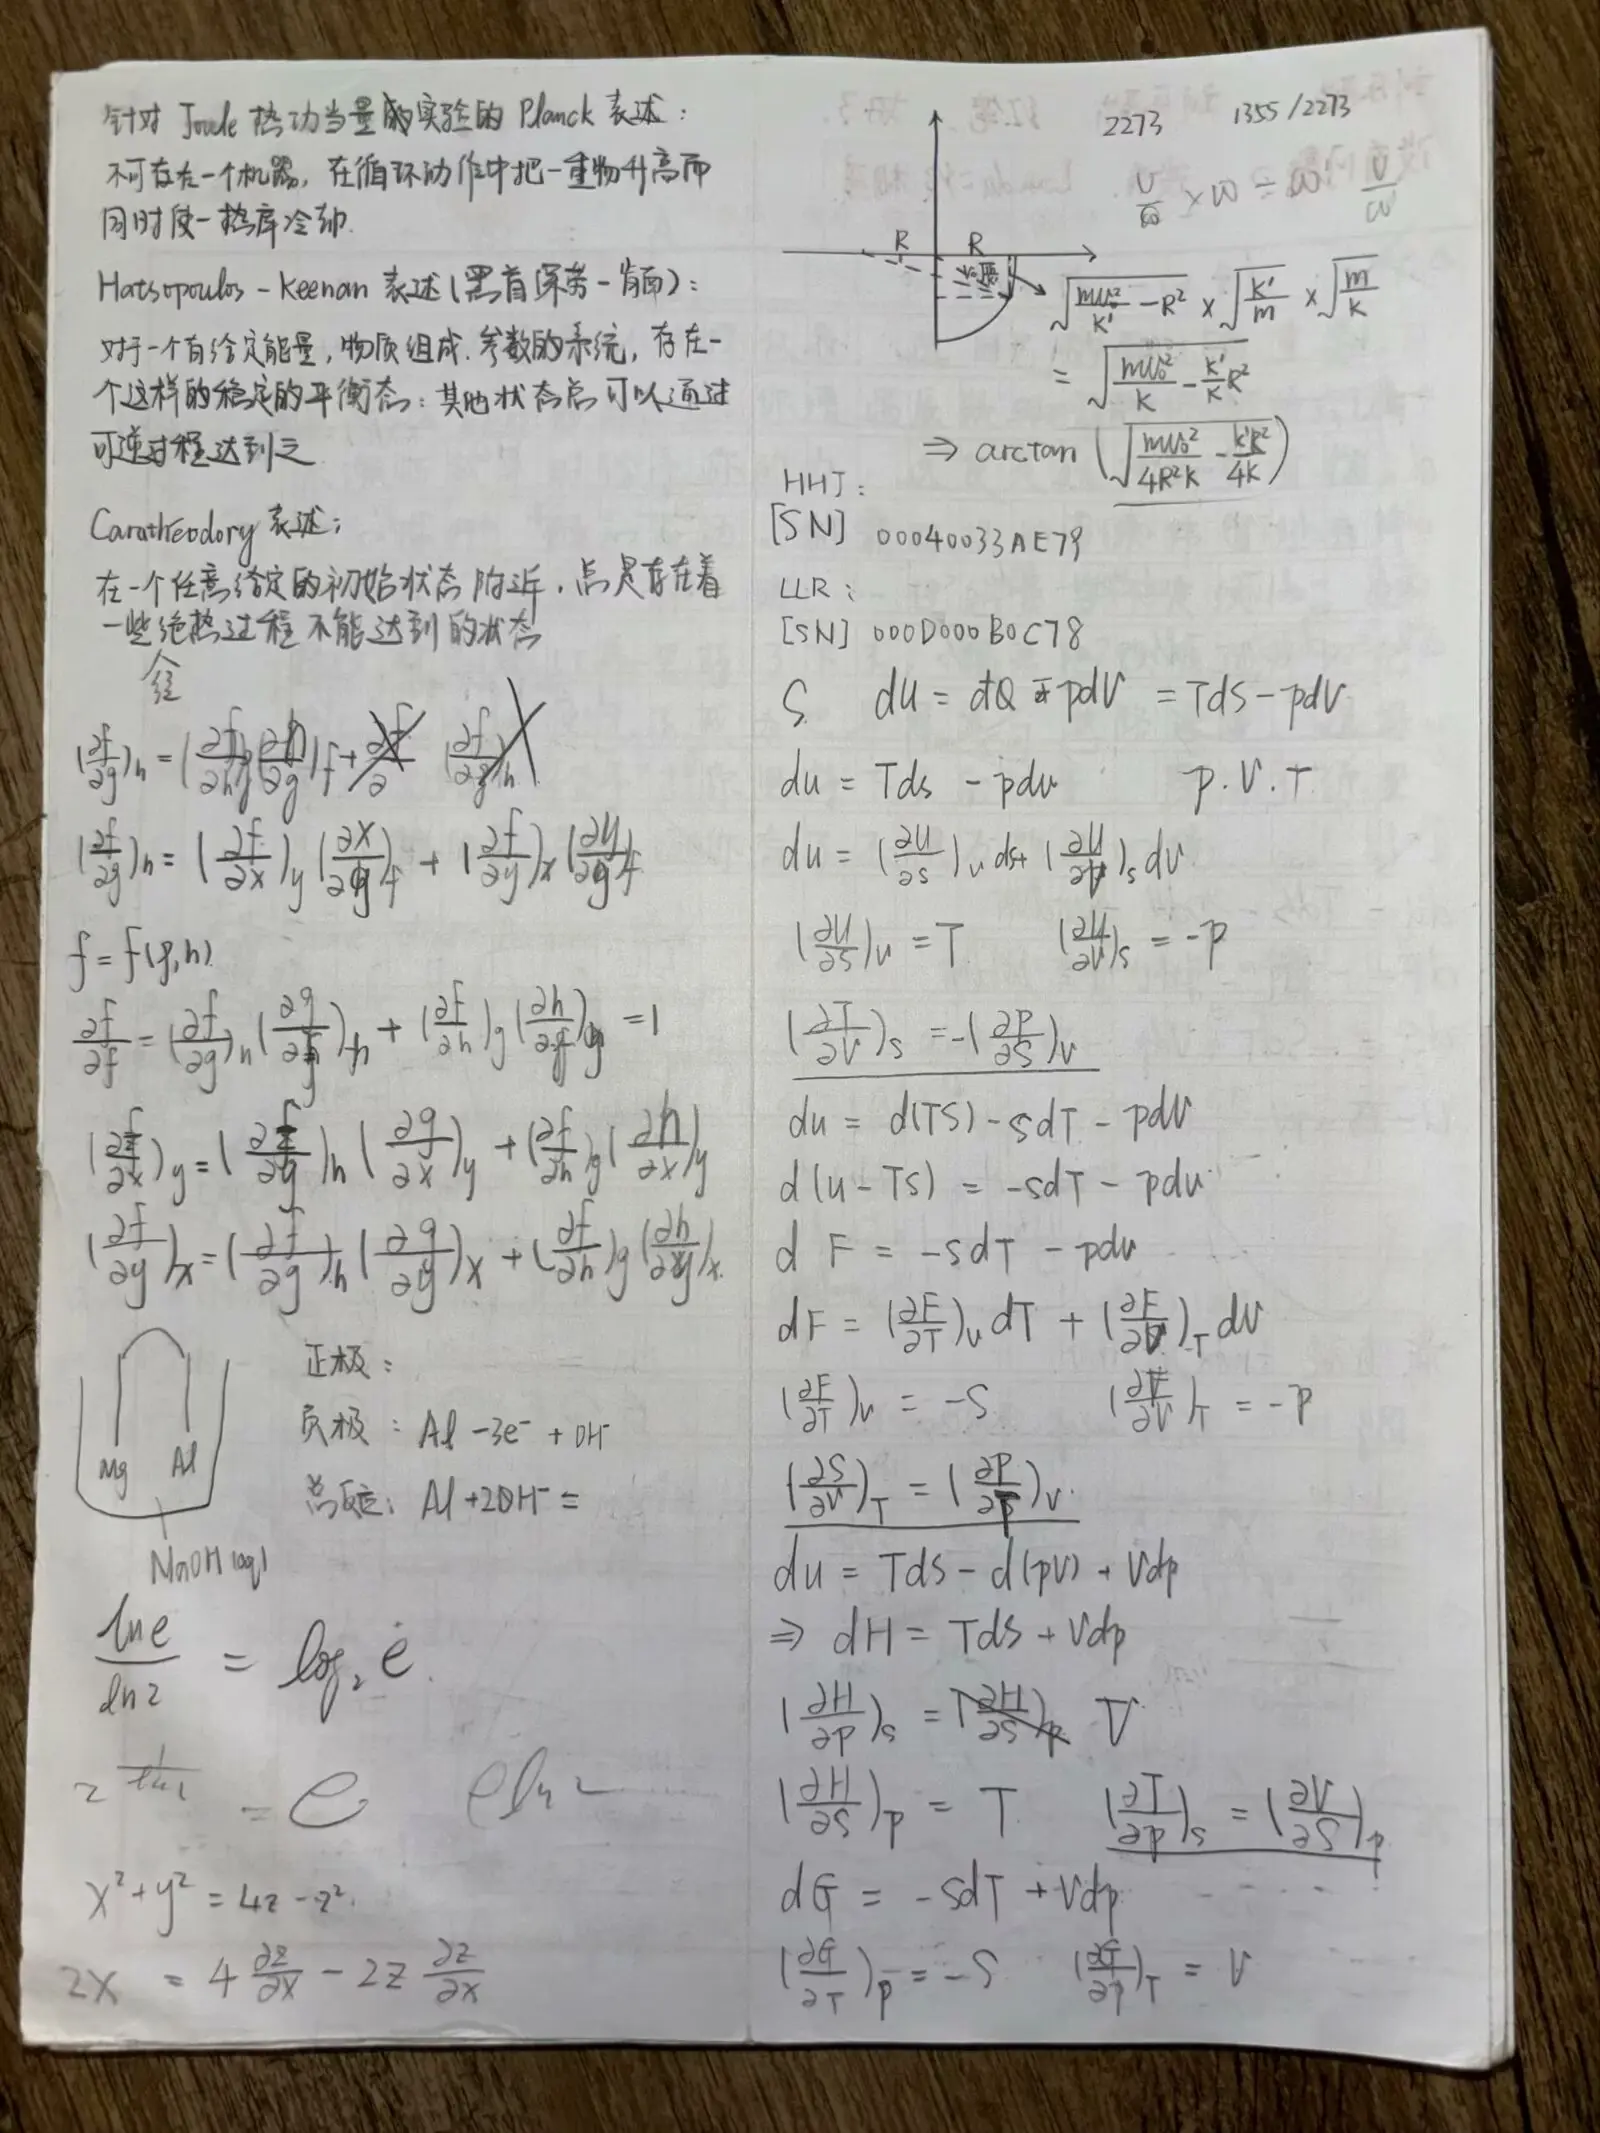 针对 Joule 热功当量的实验的 Planck 表述：
不可存在一个机器，在循环动作中把一重物升高而
同时使一热库冷却.
Hatsopoulos - Keenan 表述（黑首保劳-肯南）：
对于一个有给定能量，物质组成.参数的系统，存在一
个这样的稳定的平衡态：其他状态总可以通过
可逆过程达到之
Caratheodory 表述：
在一个任意给定的初始状态附近，总是存在着
一些绝热过程不能达到的状态
(∂f/∂g)_h = (∂f/∂h)_g (∂h/∂g)_f +
(∂f/∂g)_h = (∂f/∂x)_y (∂x/∂g)_f + (∂f/∂y)_x (∂y/∂g)_f
f = f(g,h)
∂f/∂f = (∂f/∂g)_h (∂g/∂f)_h + (∂f/∂h)_g (∂h/∂f)_g = 1
(∂f/∂x)_y = (∂f/∂g)_h (∂g/∂x)_y + (∂f/∂h)_g (∂h/∂x)_y
(∂f/∂y)_x = (∂f/∂g)_h (∂g/∂y)_x + (∂f/∂h)_g (∂h/∂y)_x
正极：
负极：Al - 3e⁻ + OH⁻
总反应：Al + 2OH⁻ =
Mg Al
NaOH (aq)
ln e / ln 2 = log₂ e.
2^(1/ln 2) = e e ln 2
x² + y² = 4z - z²
2x = 4 ∂z/∂x - 2z ∂z/∂x
2273 1355/2273
R R
√(mv₀²/k' - R²) × √(k'/m) × √(m/k)
= √(mv₀²/k - k'/k R²)
⇒ arctan (√(mv₀²/4R²k - k'R²/4k))
HHJ：
[SN] 00040033AE79
LLR：
[SN] 000D000B0C78
S du = đQ - pdV = TdS - pdV
du = Tds - pdv p.V.T
du = (∂U/∂S)_V ds + (∂U/∂V)_S dV
(∂U/∂S)_V = T (∂U/∂V)_S = -p
(∂T/∂V)_S = -(∂P/∂S)_V
du = d(TS) - SdT - pdV
d(u - TS) = -SdT - pdv
d F = -SdT - pdv
dF = (∂F/∂T)_V dT + (∂F/∂V)_T dV
(∂F/∂T)_V = -S (∂F/∂V)_T = -P
(∂S/∂V)_T = (∂P/∂T)_V
du = TdS - d(pV) + Vdp
⇒ dH = TdS + Vdp
(∂H/∂p)_S = V
(∂H/∂S)_p = T (∂T/∂p)_S = (∂V/∂S)_p
dG = -SdT + Vdp
(∂G/∂T)_p = -S (∂G/∂p)_T = V